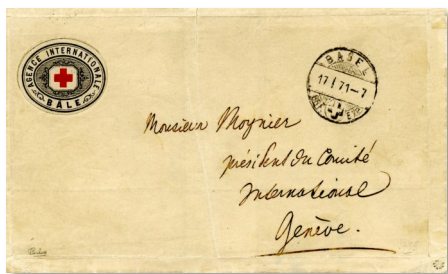 AGENCE INTERNATIONALE
BÂLE
BASEL
17.I.71-7
Monsieur Moynier
président du Comité
International
Genève.